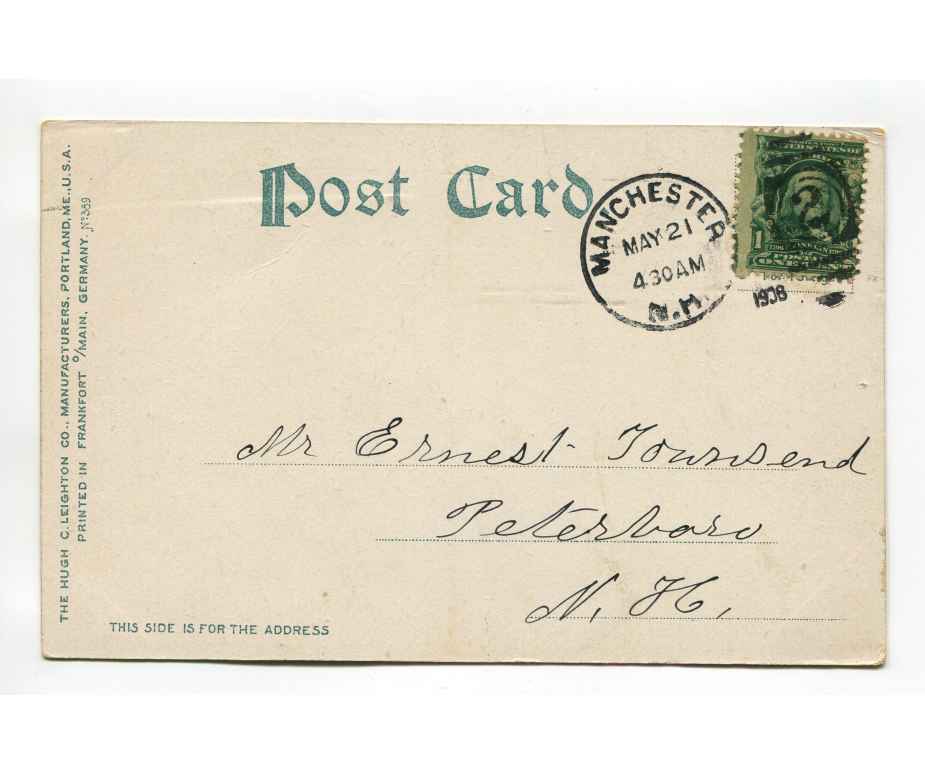 Post Card
MANCHESTER
MAY 21
430AM
N.H.
1908
1
THE HUGH C. LEIGHTON CO., MANUFACTURERS, PORTLAND, ME., U.S.A.
PRINTED IN FRANKFORT O/MAIN, GERMANY. No 389
Mr Ernest Townsend
Peterboro
N. H.
THIS SIDE IS FOR THE ADDRESS